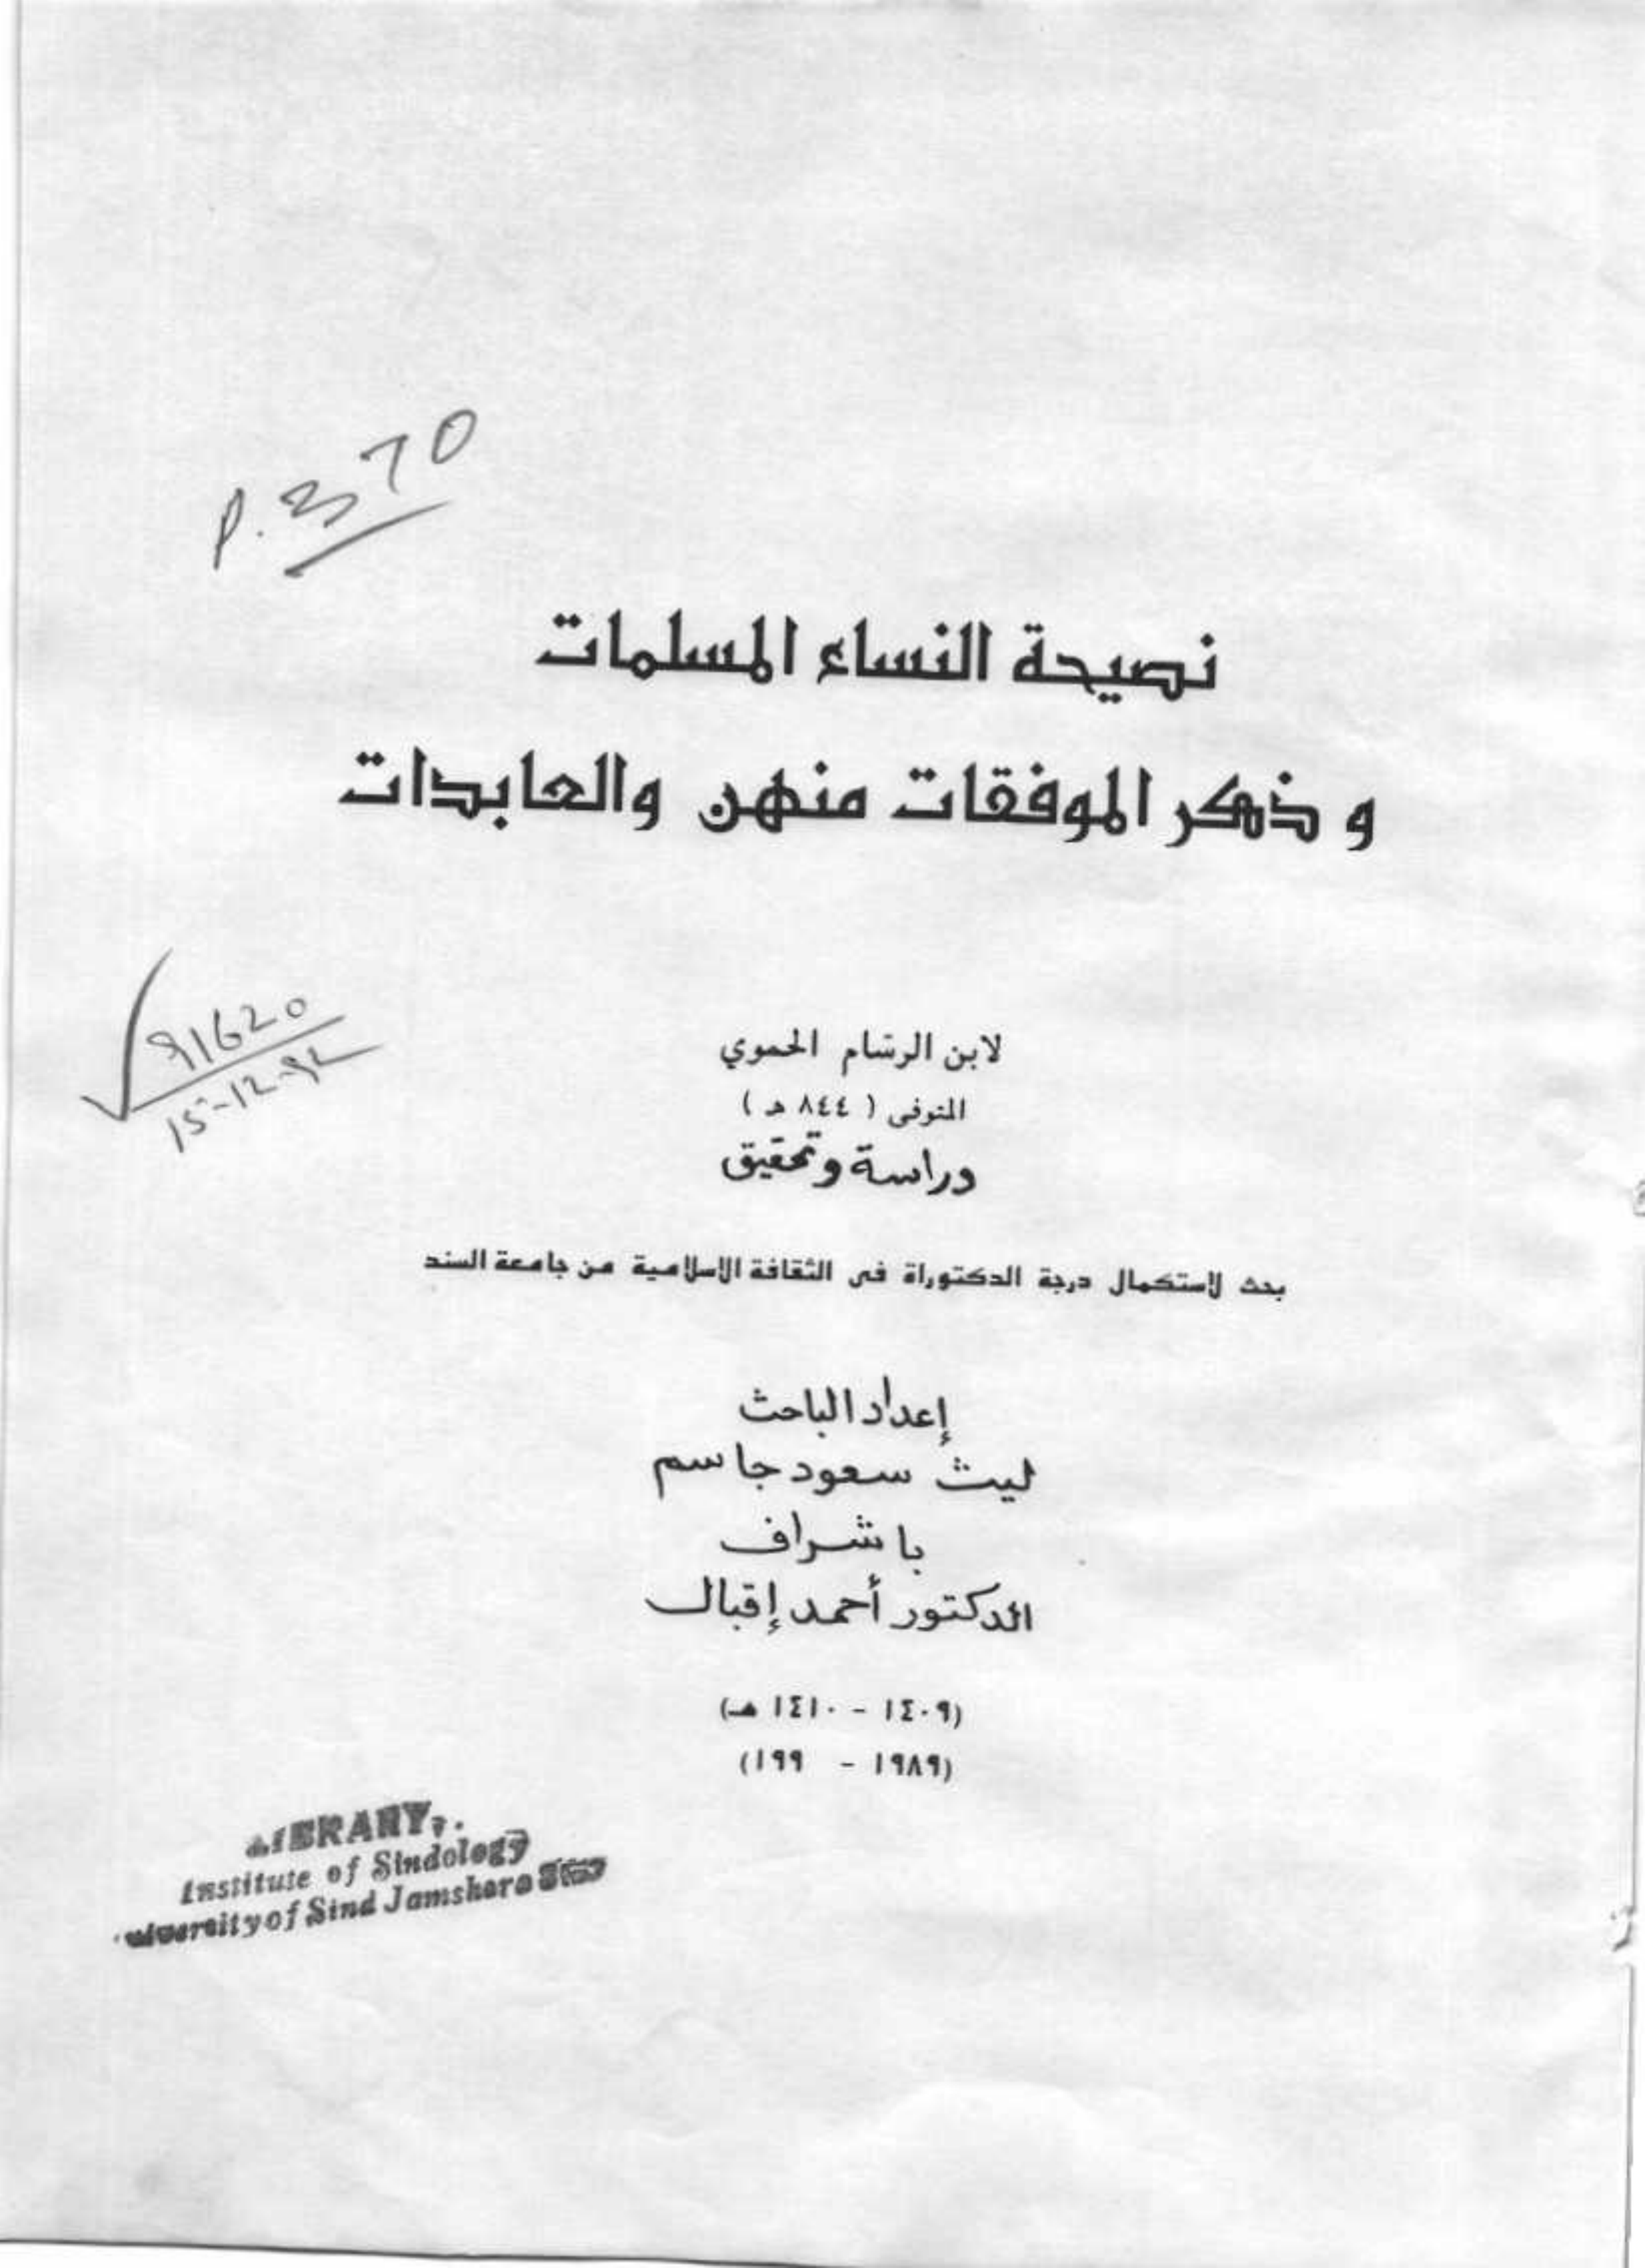 P. 370
نصيحة النساء المسلمات
و ذكر الموفقات منهن والعابدات
91620
15-12-92
لابن الرسّام الحموي
المتوفى ( ٨٤٤ هـ )
دراسة وتحقيق
بحث لاستكمال درجة الدكتوراة فى الثقافة الاسلامية من جامعة السند
إعداد الباحث
ليث سعود جاسم
باشراف
الدكتور أحمد إقبال
(١٤٠٩ - ١٤١٠ هـ)
(١٩٨٩ - ١٩٩)
LIBRARY,
Institute of Sindology
University of Sind Jamshoro